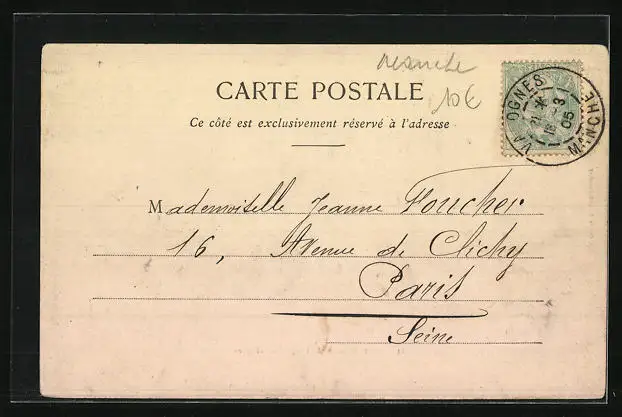 Manche
CARTE POSTALE
10€
Ce côté est exclusivement réservé à l'adresse
VALOGNES
MANCHE
18 -3
05
Mademoiselle Jeanne Foucher
16, Avenue de Clichy
Paris
Seine